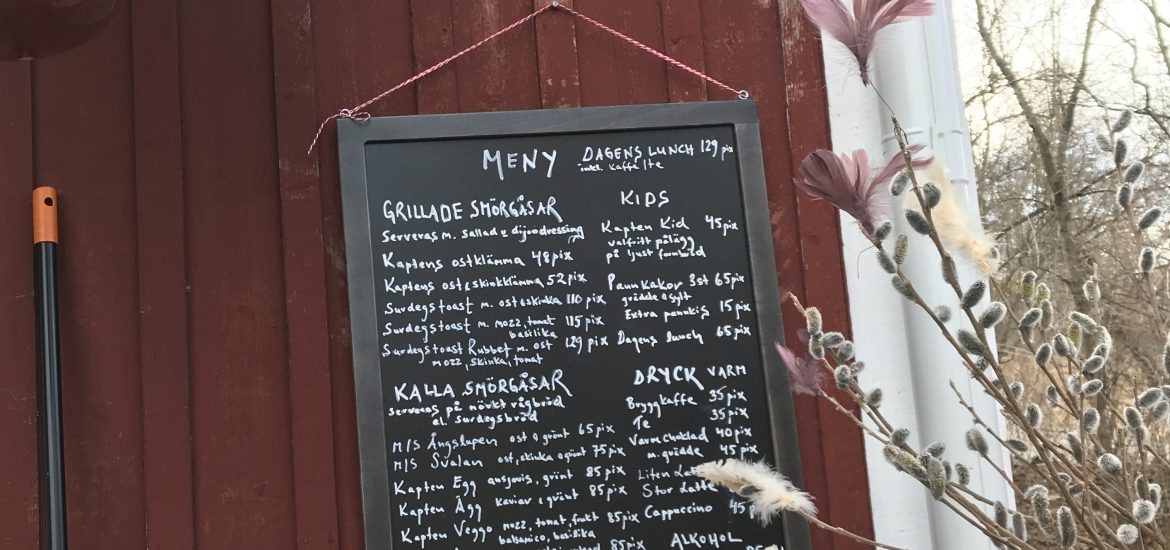 MENY
DAGENS LUNCH 129 pix
inkl. kaffe/te
GRILLADE SMÖRGÅSAR
Serveras m. sallad & dijondressing
Kaptens ostklämma 48 pix
Kaptens ost & skinkklämma 52 pix
Surdegstoast m. ost & skinka 110 pix
Surdegstoast m. mozz, tomat, basilika 115 pix
Surdegstoast Rubbet m. ost 129 pix
mozz, skinka, tomat
KALLA SMÖRGÅSAR
serveras på mörkt rågbröd
el. surdegsbröd
M/S Ångslupen ost & grönt 65 pix
M/S Svalan ost, skinka & grönt 75 pix
Kapten Egg ansjovis, grönt 85 pix
Kapten Ägg kaviar & grönt 85 pix
Kapten Veggo mozz, tomat, frukt 85 pix
balsamico, basilika
85 pix
KIDS
Kapten Kid 45 pix
valfritt pålägg
på ljust formbröd
Pannkakor 3st 65 pix
grädde & sylt
Extra pannkis 15 pix
Dagens lunch 65 pix
DRYCK VARM
Bryggkaffe 35 pix
Te 35 pix
Varm choklad 40 pix
m. grädde 45 pix
Liten Latte
Stor Latte
Cappuccino 45
ALKOHOL